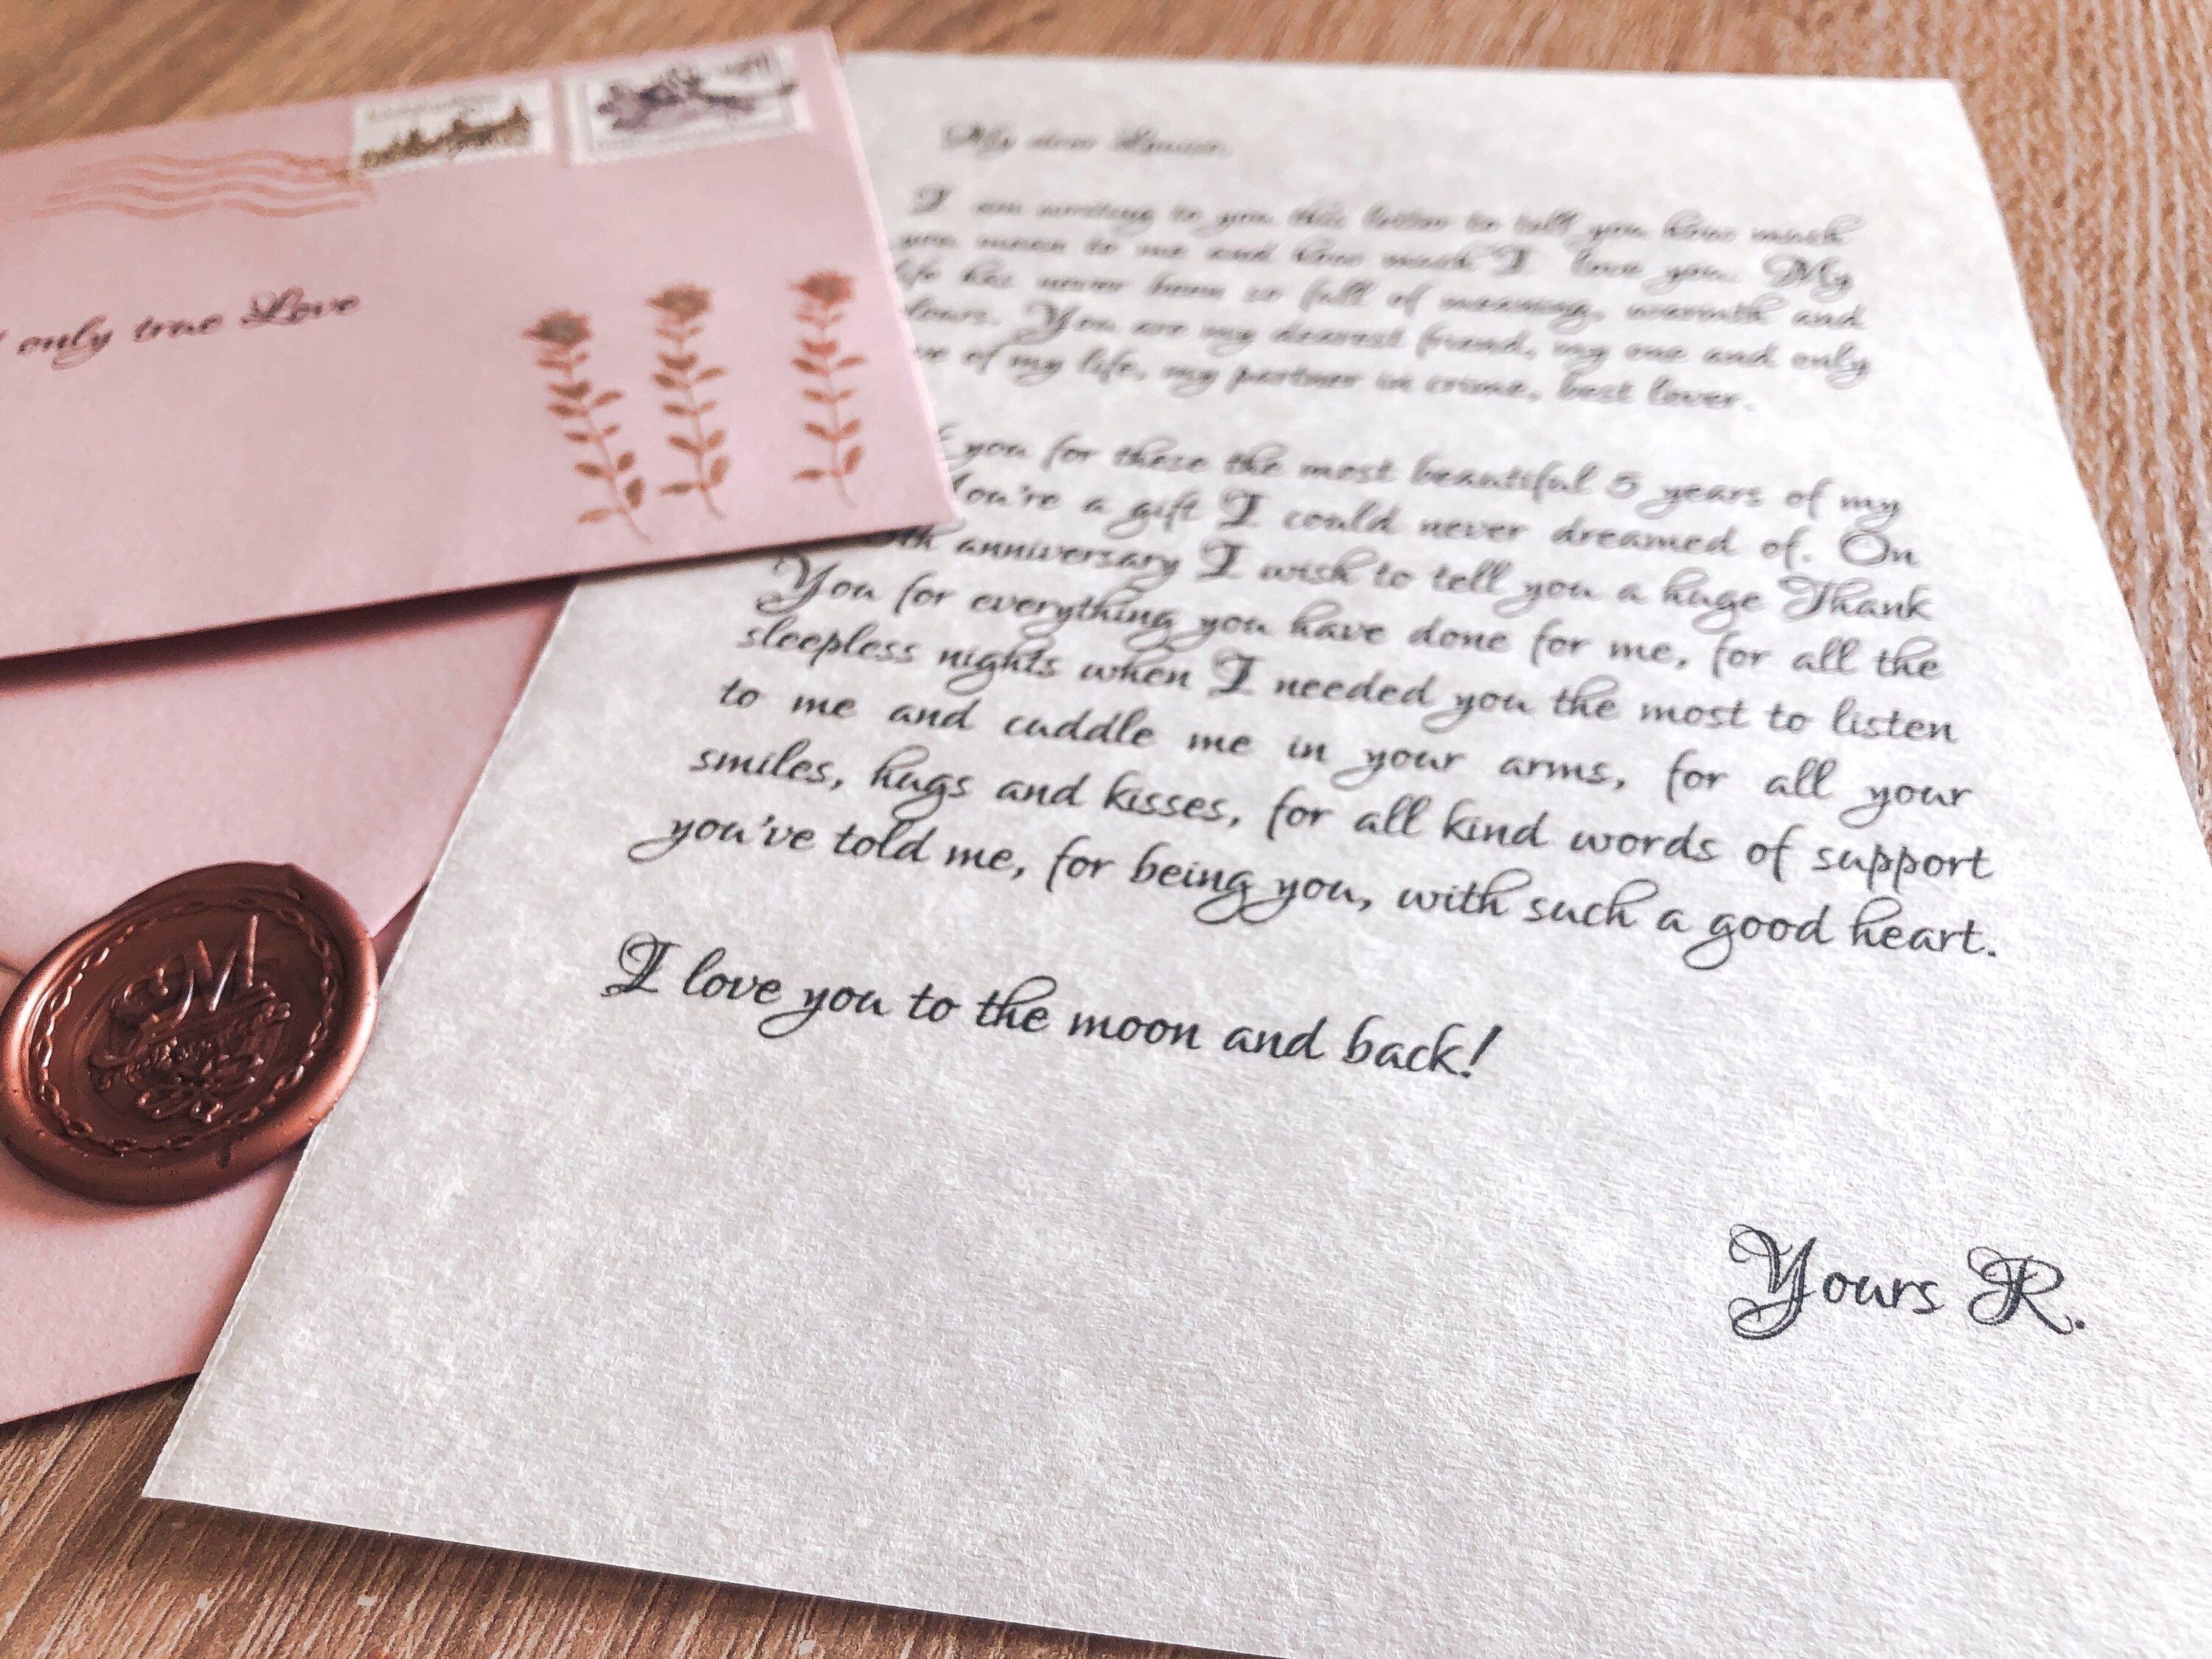 only true Love
My dear
I am writing to you this letter to tell you how much
you mean to me and how much I love you. My
life has never been so full of meaning, warmth and
You are my dearest friend, my one and only
of my life, my partner in crime, best lover.
you for these the most beautiful 5 years of my
You're a gift I could never dreamed of. On
anniversary I wish to tell you a huge Thank
You for everything you have done for me, for all the
sleepless nights when I needed you the most to listen
to me and cuddle me in your arms, for all your
smiles, hugs and kisses, for all kind words of support
you've told me, for being you, with such a good heart.
I love you to the moon and back!
Yours R.
M